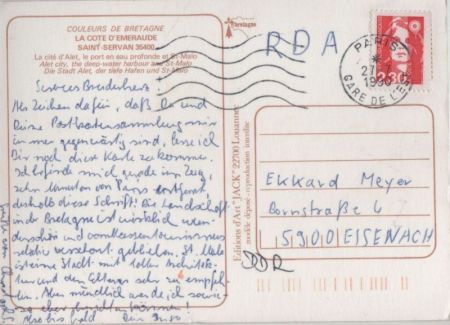 COULEURS DE BRETAGNE
LA COTE D'EMERAUDE
SAINT-SERVAN 35400
La cité d'Alet, le port en eau profonde et St-Malo
Alet city, the deep-water harbour and St-Malo
Die Stadt Alet, der tiefe Hafen und St-Malo
Bretagne
RDA
PARIS
27
1990
GARE DE L'EST
2,30
Als Zeichen dafür, daß Du und
Deine Postkartensammlung mir
immer gegenwärtig sind, lasse ich
Dir noch diese Karte zukommen.
Ich befinde mich gerade im Zug,
zehn Minuten von Paris entfernt,
deshalb diese Schrift! Die Landschaft
in der Bretagne ist wirklich wun-
derschön und vom Massentourismus
relativ verschont geblieben. St. Malo
ist eine Stadt mit toller Architek-
tur und den Eltern sehr zu empfeh-
len. Aber mündlich werde ich sowie-
so eher berichten können.
Also bis bald Dein
Editions d'Art "JACK" 22700 Louannec
modèle déposé - reproduction interdite
Ekkard Meyer
Bornstraße 6
5900 EISENACH
DDR